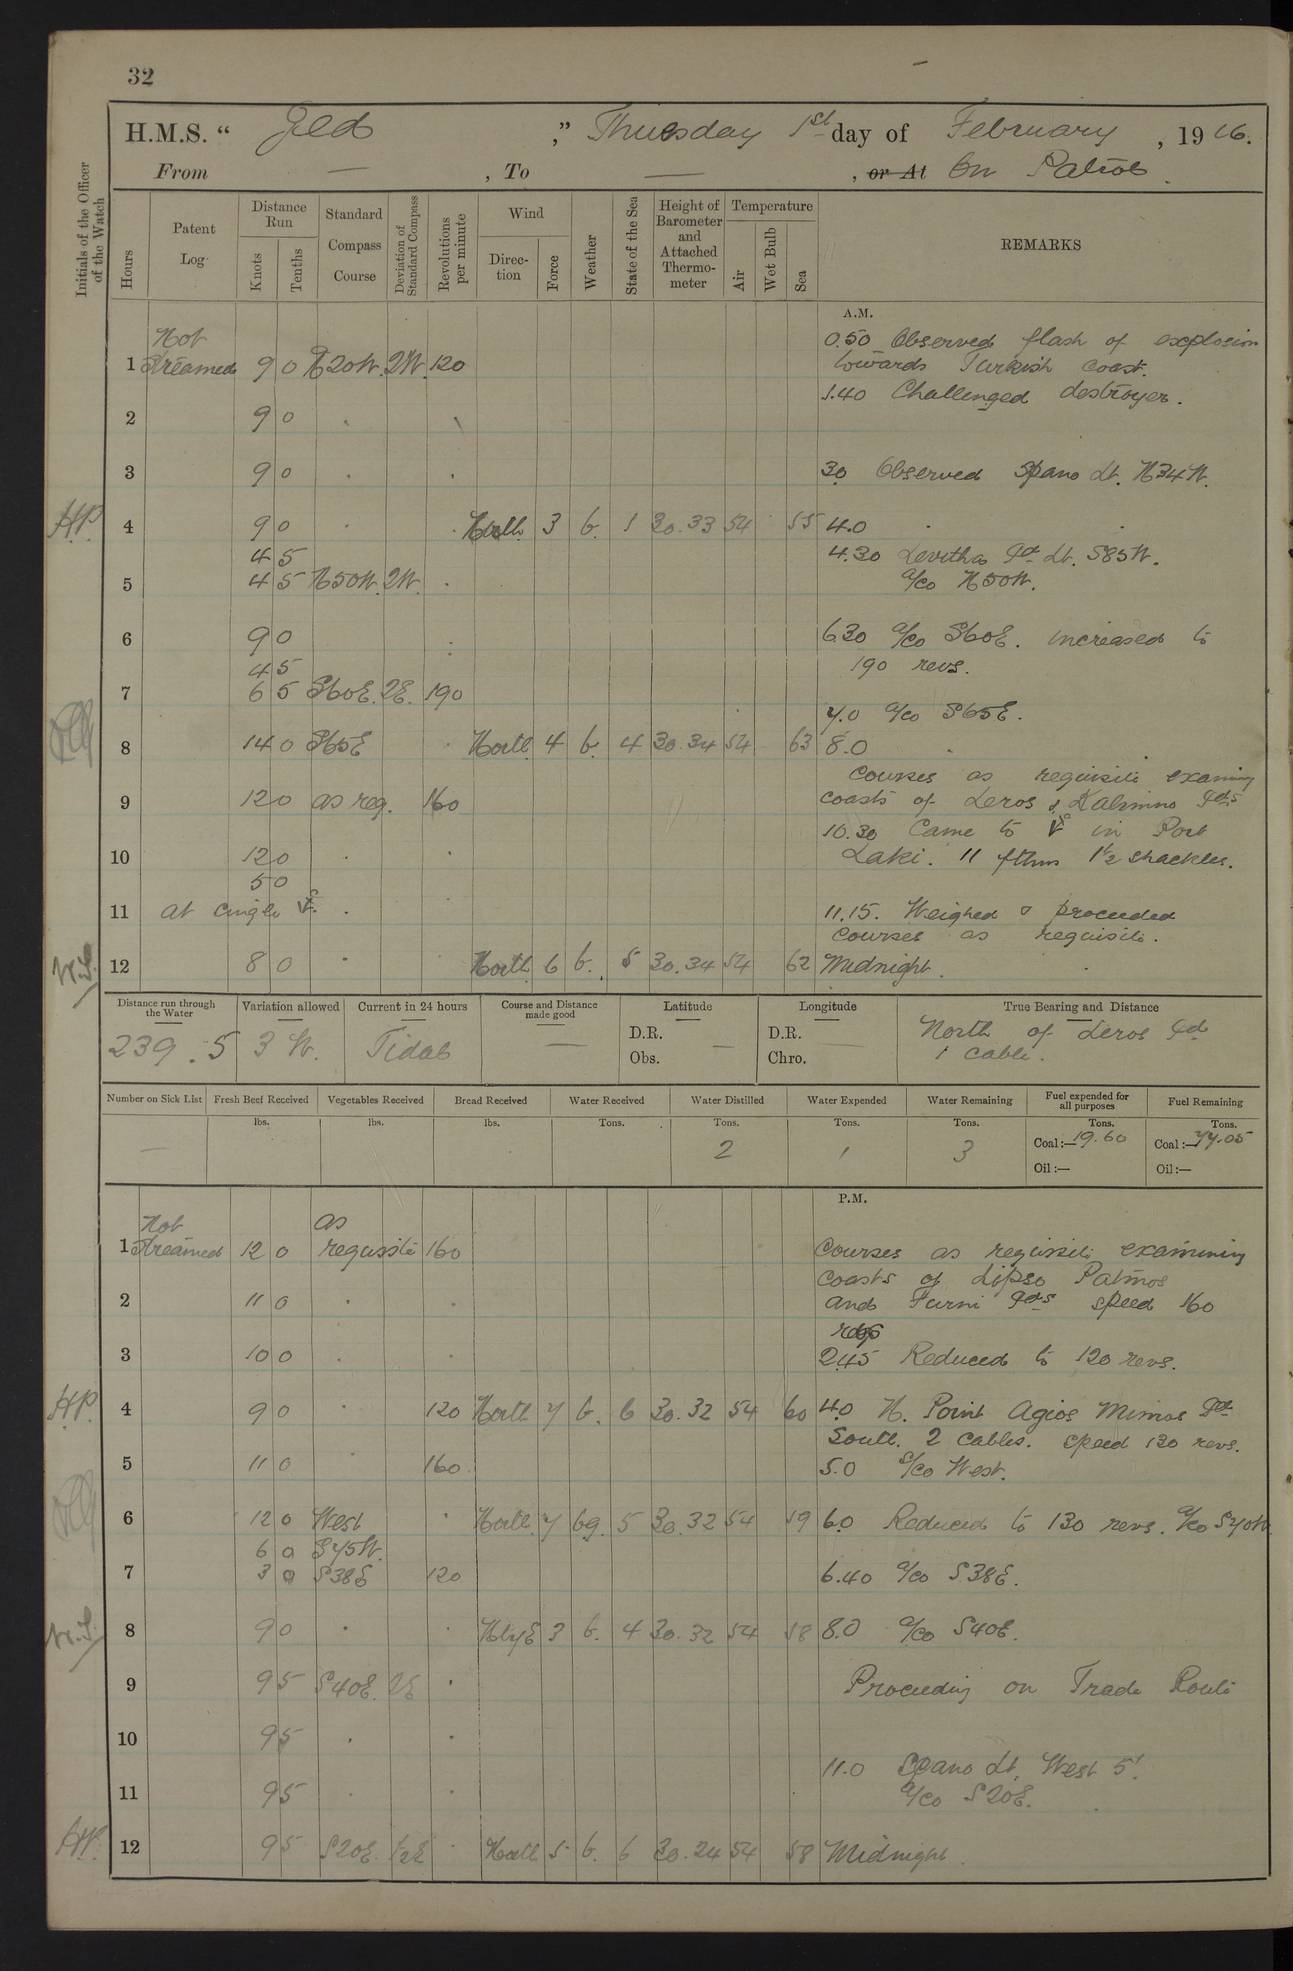 32
H.M.S. " Jed ," Thuesday 1st day of February , 1916.
From — , To — , or At On Patrol.
Initials of the Officer of the Watch
Hours
Patent Log
Distance Run
Knots
Tenths
Standard Compass Course
Deviation of Standard Compass
Revolutions per minute
Wind
Direction
Force
Weather
State of the Sea
Height of Barometer and Attached Thermometer
Temperature
Air
Wet Bulb
Sea
REMARKS
A.M.
Not 0.50 Observed flash of explosion
1 streamed 9 0 N20W. 2W. 120 towards Turkish coast.
1.40 Challenged destroyer.
2 9 0 . .
3 9 0 . . 3.0 Observed Spano Lt. N34W.
H.P. 4 9 0 . . North 3 b. 1 30.33 54 55 4.0 . .
4 5 4.30 Levitha Id Lt. S85W.
5 4 5 N50W. 2W. . a/co N50W.
6 9 0 . 6.30 a/co S60E. increased to
4 5 190 revs.
7 6 5 S60E. 2E. 190
7.0 a/co S65E.
8 14 0 S65E . North 4 b. 4 30.34 54 63 8.0 .
Courses as requisite examining
9 12 0 as req. 160 coasts of Leros & Kalimno Ids
10.30 Came to in Port
10 12 0 . . Laki. 11 fthms 1½ shackles.
5 0
11 at single . 11.15. Weighed & proceeded
courses as requisite.
W.S. 12 8 0 . . North 6 b. 5 30.34 54 62 Midnight. .
Distance run through the Water
239.5
Variation allowed
3 W.
Current in 24 hours
Tidal
Course and Distance made good
—
Latitude
D.R.
Obs.
—
Longitude
D.R.
Chro.
—
True Bearing and Distance
North of Leros Id
1 cable.
Number on Sick List
—
Fresh Beef Received
lbs.
Vegetables Received
lbs.
Bread Received
lbs.
Water Received
Tons.
Water Distilled
Tons.
2
Water Expended
Tons.
1
Water Remaining
Tons.
3
Fuel expended for all purposes
Tons.
Coal:— 19.60
Oil:—
Fuel Remaining
Tons.
Coal:— 77.05
Oil:—
P.M.
Not as
1 streamed 12 0 requisite 160 Courses as requisite examining
coasts of Lipso Patmos
2 11 0 . . and Furni Ids speed 160
3 10 0 . . 2.45 Reduced to 120 revs.
H.P. 4 9 0 . 120 North 7 b. 6 30.32 54 60 4.0 N. Point Agios Mimas Id
South. 2 cables. speed 130 revs.
5 11 0 . 160 5.0 a/co West.
6 12 0 West . North 7 bg. 5 30.32 54 59 6.0 Reduced to 130 revs. a/co S70W
6 0 S75W.
7 3 0 S38E 120 6.40 a/co S38E.
W.S. 8 9 0 . . NbyE 3 b. 4 30.32 54 58 8.0 a/co S40E.
9 9 5 S40E. 2E . Proceeding on Trade Route
10 9 5 . .
11.0 Spano Lt. West 5'.
11 9 5 . . a/co S20E.
H.P. 12 9 5 S20E. 1/2E . North 5 b. 6 30.24 54 58 Midnight.